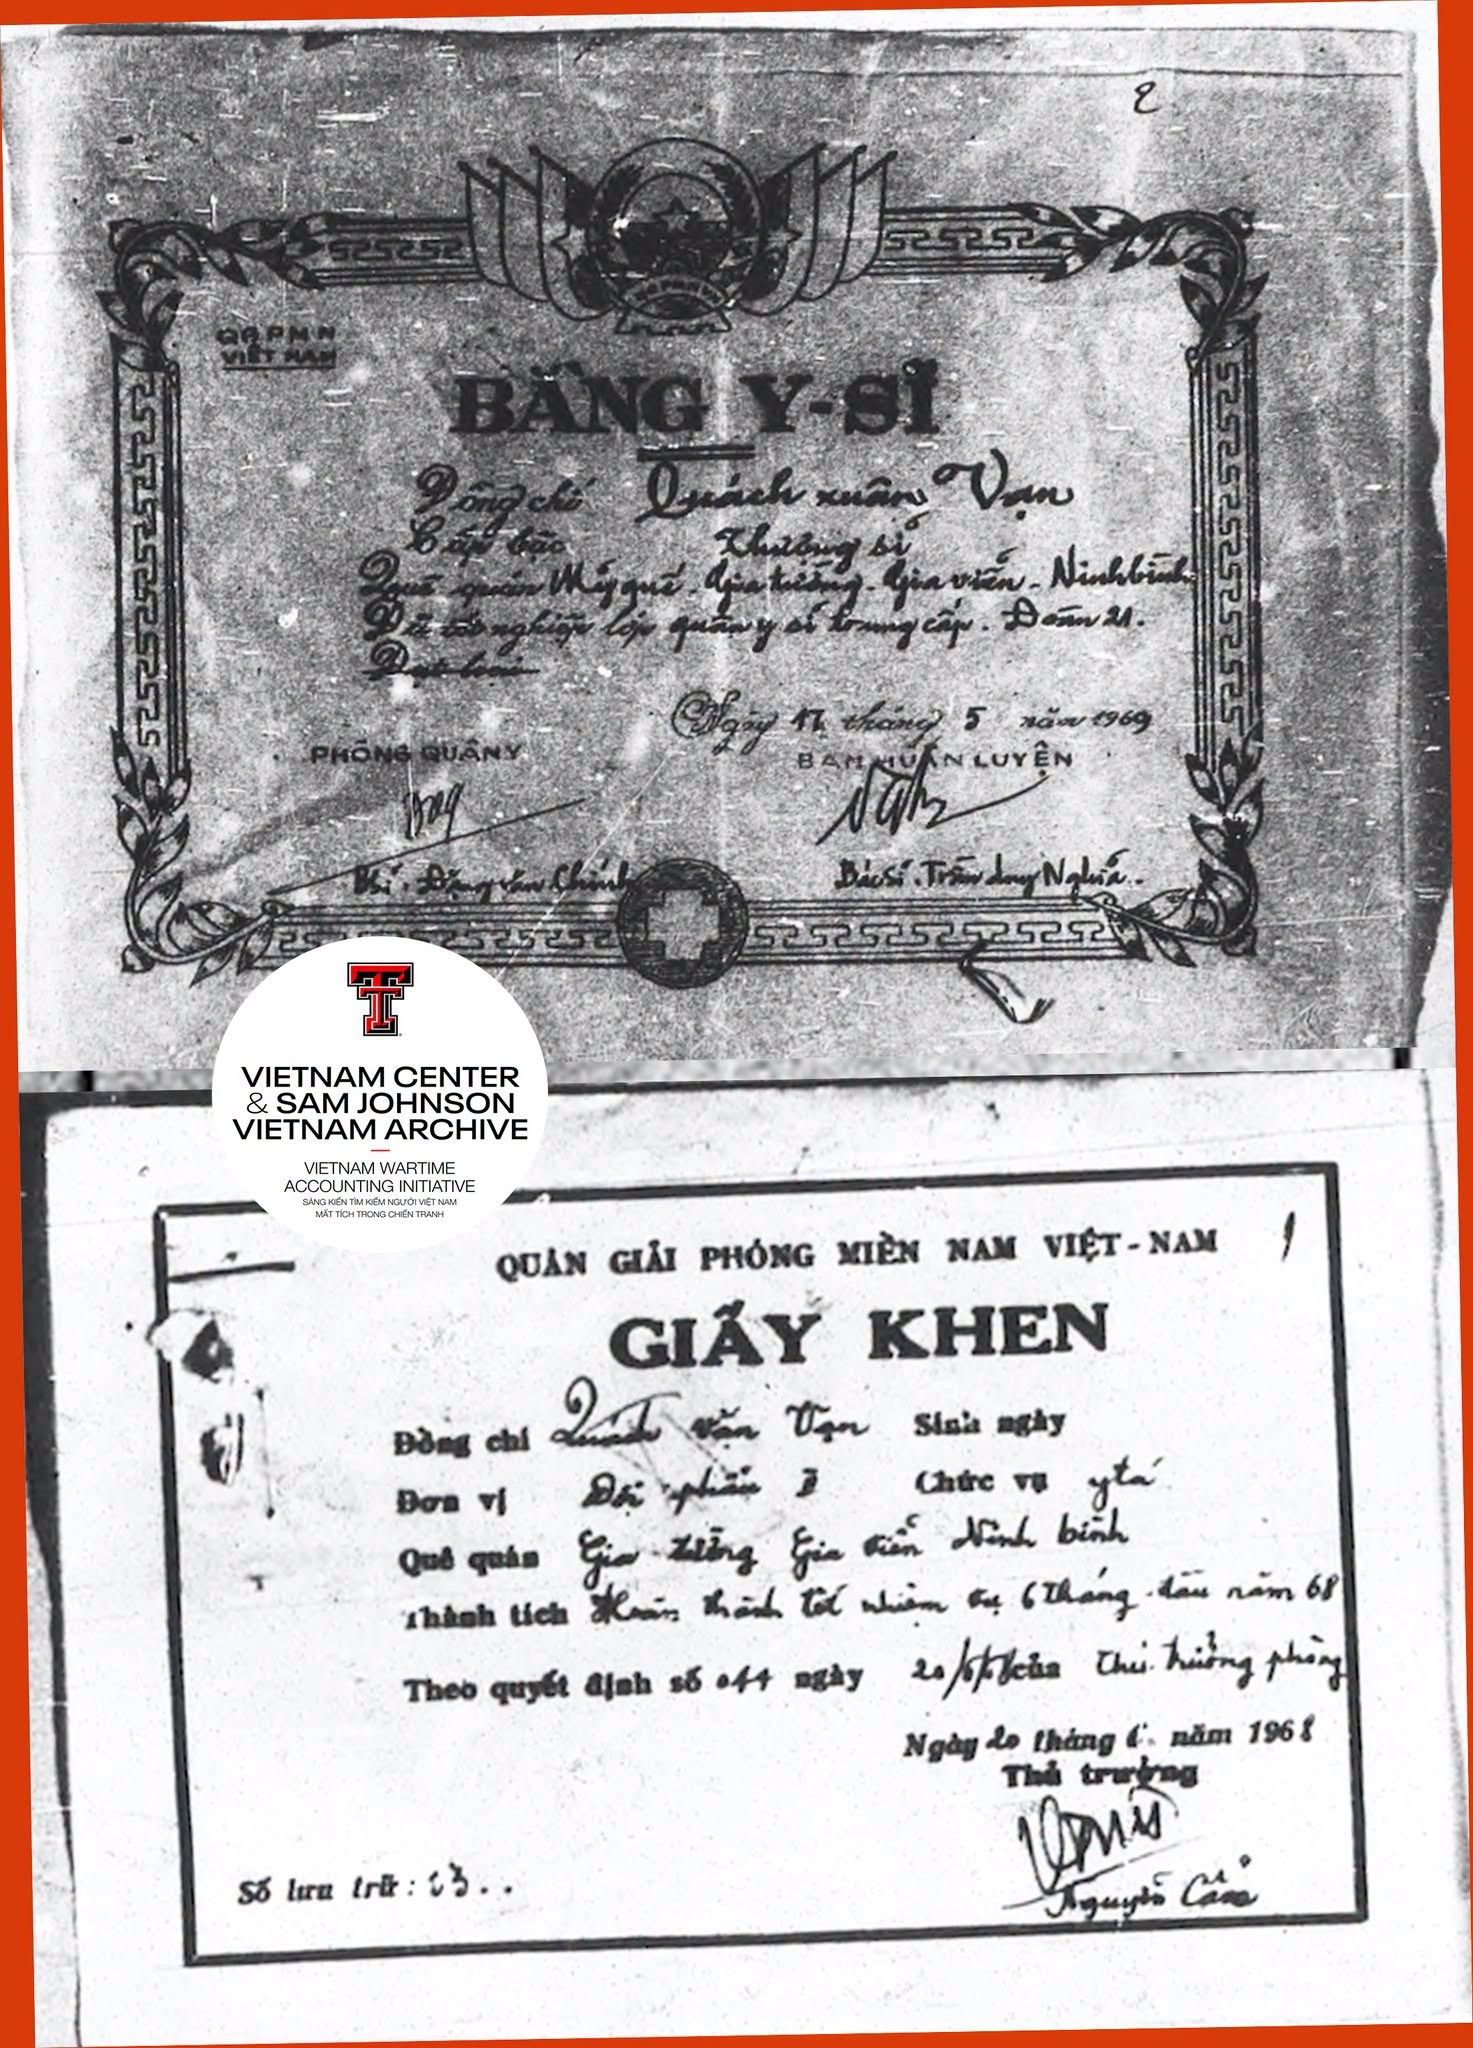 2
QGPMN
VIỆT NAM
BẰNG Y-SĨ
Đồng chí Quách xuân Vạn
Cấp bậc Thượng sĩ
Quê quán Mỹ quế. Gia tường. Gia viễn. Ninh bình
Đã tốt nghiệp lớp quân y sĩ trung cấp. Đoàn 21.
Đạt loại
Ngày 17 tháng 5 năm 1969
PHÒNG QUÂN Y
BAN HUẤN LUYỆN
Đặng văn Chính
Bác sĩ. Trần duy Nghĩa
VIETNAM CENTER
& SAM JOHNSON
VIETNAM ARCHIVE
VIETNAM WARTIME
ACCOUNTING INITIATIVE
SÁNG KIẾN TÌM KIẾM NGƯỜI VIỆT NAM
MẤT TÍCH TRONG CHIẾN TRANH
1
QUÂN GIẢI PHÓNG MIỀN NAM VIỆT-NAM
GIẤY KHEN
Đồng chí Quách văn Vạn Sinh ngày
Đơn vị Đội phẫu I Chức vụ y tá
Quê quán Gia tường Gia viễn Ninh bình
Thành tích Hoàn thành tốt nhiệm vụ 6 tháng đầu năm 68
Theo quyết định số 044 ngày 20/6/68 của Thủ trưởng phòng
Ngày 20 tháng 6 năm 1968
Thủ trưởng
Nguyễn
Số lưu trữ: 13..